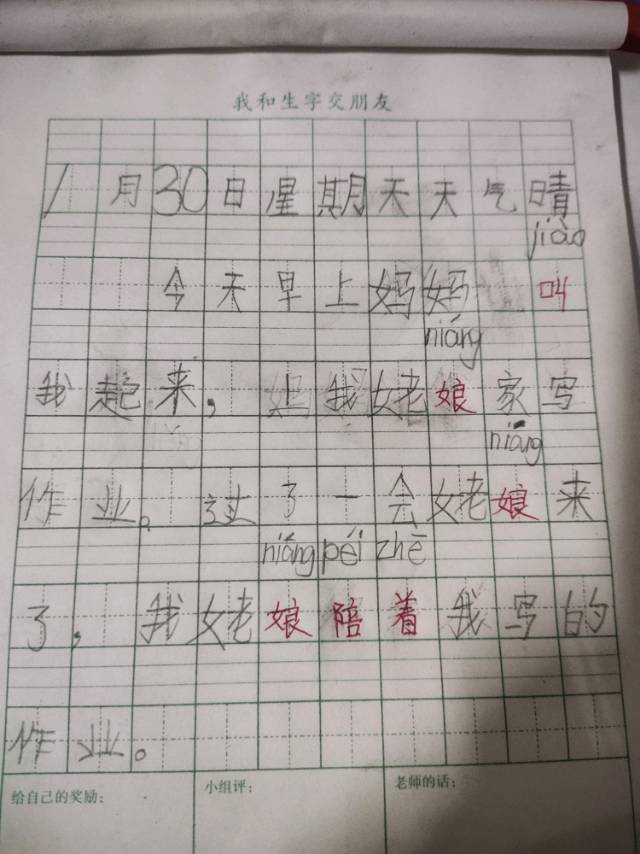 我和生字交朋友
1月30日星期天天气晴
jiào
今天早上妈妈叫
niáng
我起来，上我姥娘家写
niáng
作业。过了一会姥娘来
niáng péi zhē
了，我姥娘陪着我写的
作业。
给自己的奖励： 小组评： 老师的话：